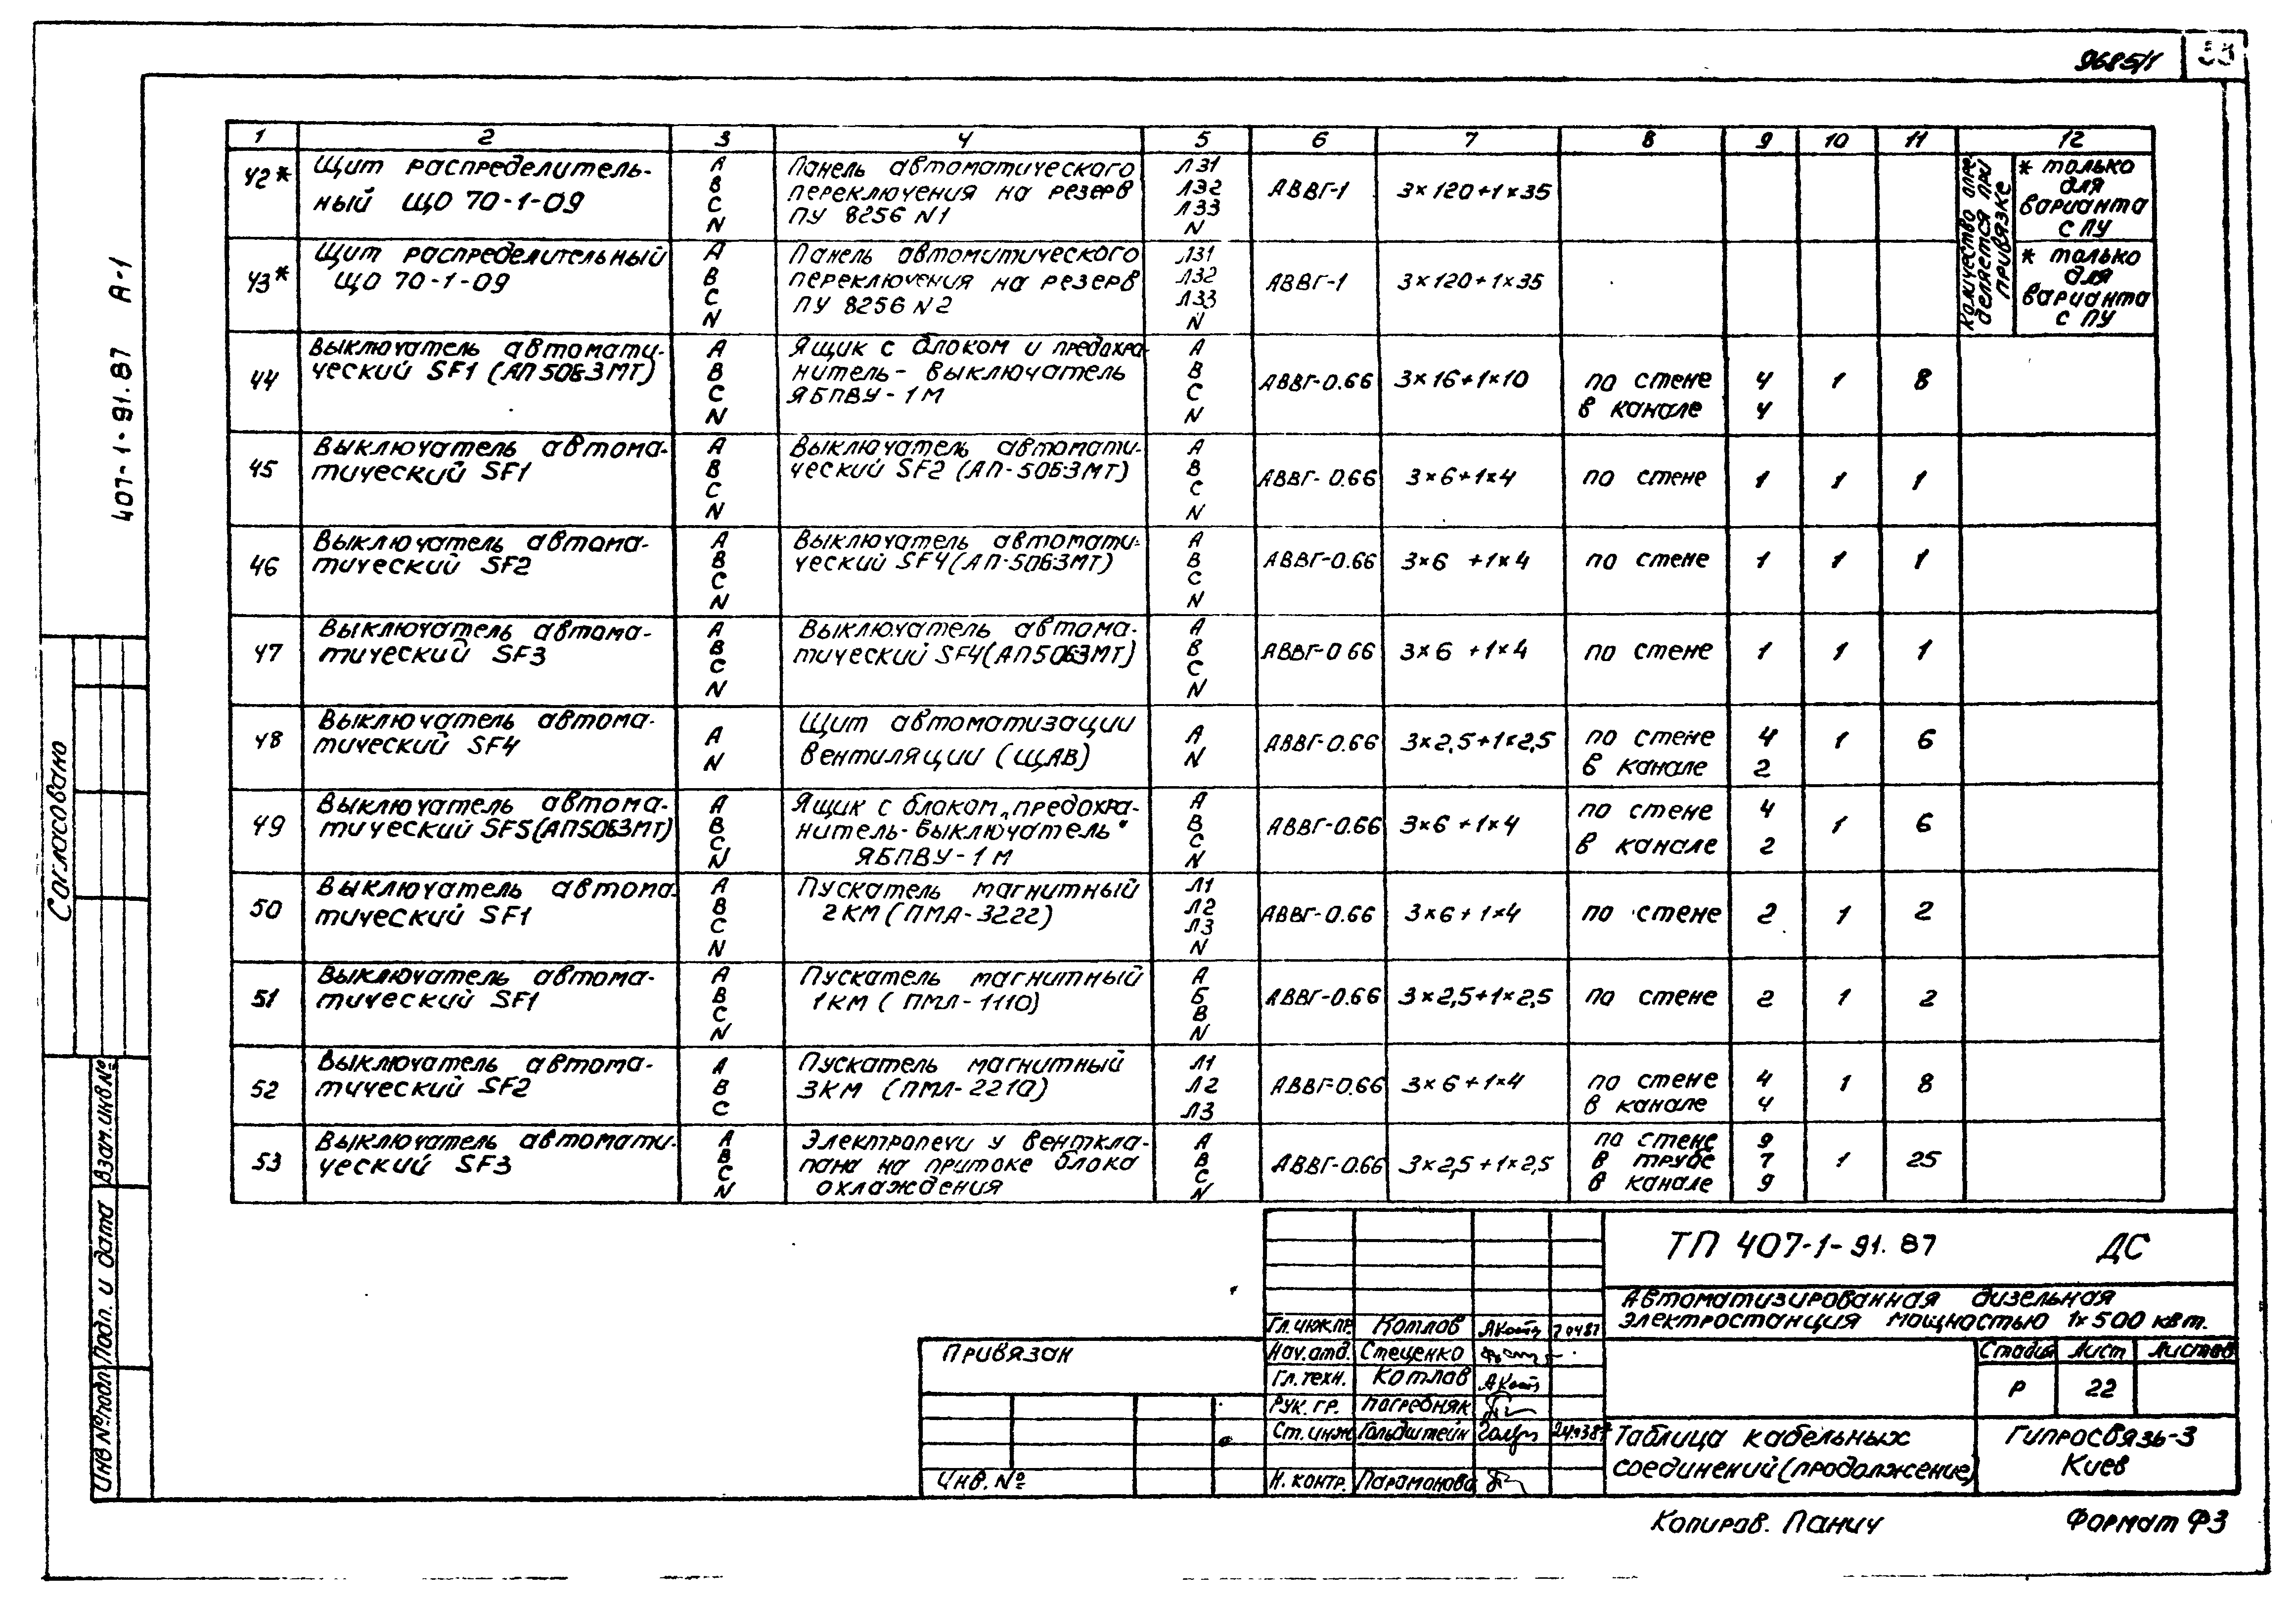 9685/1
407-1-91.87 А-1
1 2 3 4 5 6 7 8 9 10 11 12
42* Щит распределитель-
ный ЩО 70-1-09
А
В
С
N
Панель автоматического
переключения на резерв
ПУ 8256 N1
Л31
Л32
Л33
N
АВВГ-1 3×120+1×35
Количество опре-
деляется при
привязке
* только
для
варианта
с ПУ
43* Щит распределительный
ЩО 70-1-09
А
В
С
N
Панель автомитического
переключения на резерв
ПУ 8256 N2
Л31
Л32
Л33
N
АВВГ-1 3×120+1×35
* только
для
варианта
с ПУ
44 Выключатель автомати-
ческий SF1 (АП50Б3МТ)
А
В
С
N
Ящик с блоком и предохра-
нитель- выключатель
ЯБПВУ-1М
А
В
С
N
АВВГ-0.66 3×16+1×10 по стене 4 1 8
в канале 4
45 Выключатель автома-
тический SF1
А
В
С
N
Выключатель автомати-
ческий SF2 (АП-50Б3МТ)
А
В
С
N
АВВГ-0.66 3×6+1×4 по стене 1 1 1
46 Выключатель автома-
тический SF2
А
В
С
N
Выключатель автомати-
ческий SF4 (АП-50Б3МТ)
А
В
С
N
АВВГ-0.66 3×6 +1×4 по стене 1 1 1
47 Выключатель автома-
тический SF3
А
В
С
N
Выключатель автома-
тический SF4 (АП50Б3МТ)
А
В
С
N
АВВГ-0 66 3×6 +1×4 по стене 1 1 1
48 Выключатель автома-
тический SF4
А
N
Щит автоматизации
вентиляции (ЩАВ)
А
N
АВВГ-0.66 3×2,5+1×2,5 по стене 4 1 6
в канале 2
49 Выключатель автома-
тический SF5 (АП50Б3МТ)
А
В
С
N
Ящик с блоком „предохра-
нитель-выключатель"
ЯБПВУ-1М
А
В
С
N
АВВГ-0.66 3×6 +1×4 по стене 4 1 6
в канале 2
50 Выключатель автома-
тический SF1
А
В
С
N
Пускатель магнитный
2КМ (ПМА-3222)
Л1
Л2
Л3
N
АВВГ-0.66 3×6+1×4 по стене 2 1 2
51 Выключатель автома-
тический SF1
А
В
С
N
Пускатель магнитный
1КМ ( ПМЛ-1110)
А
Б
В
N
АВВГ-0.66 3×2,5+1×2,5 по стене 2 1 2
52 Выключатель автома-
тический SF2
А
В
С
Пускатель магнитный
3КМ (ПМЛ-2210)
Л1
Л2
Л3
АВВГ-0.66 3×6+1×4 по стене 4 1 8
в канале 4
53 Выключатель автомати-
ческий SF3
А
В
С
N
Электропечи у венткла-
пана на притоке блока
охлаждения
А
В
С
N
АВВГ-0.66 3×2,5+1×2,5 по стене 9 1 25
в трубе 7
в канале 9
Согласовано
Взам.инв.№
Подп. и дата
Инв №подл
Привязан
Инв. №
Гл.инж.пр. Котлов
Нач.отд. Стеценко
Гл.техн. Котлов
Рук. гр. Погребняк
Ст.инж Гольдштейн
Н. контр. Парамонова
ТП 407-1-91.87 ДС
Автоматизированная дизельная
электростанция мощностью 1×500 квт.
Стадия Лист Листов
Р 22
Таблица кабельных
соединений(продолжение)
Гипросвязь-3
Киев
Копиров. Панич Формат Ф3